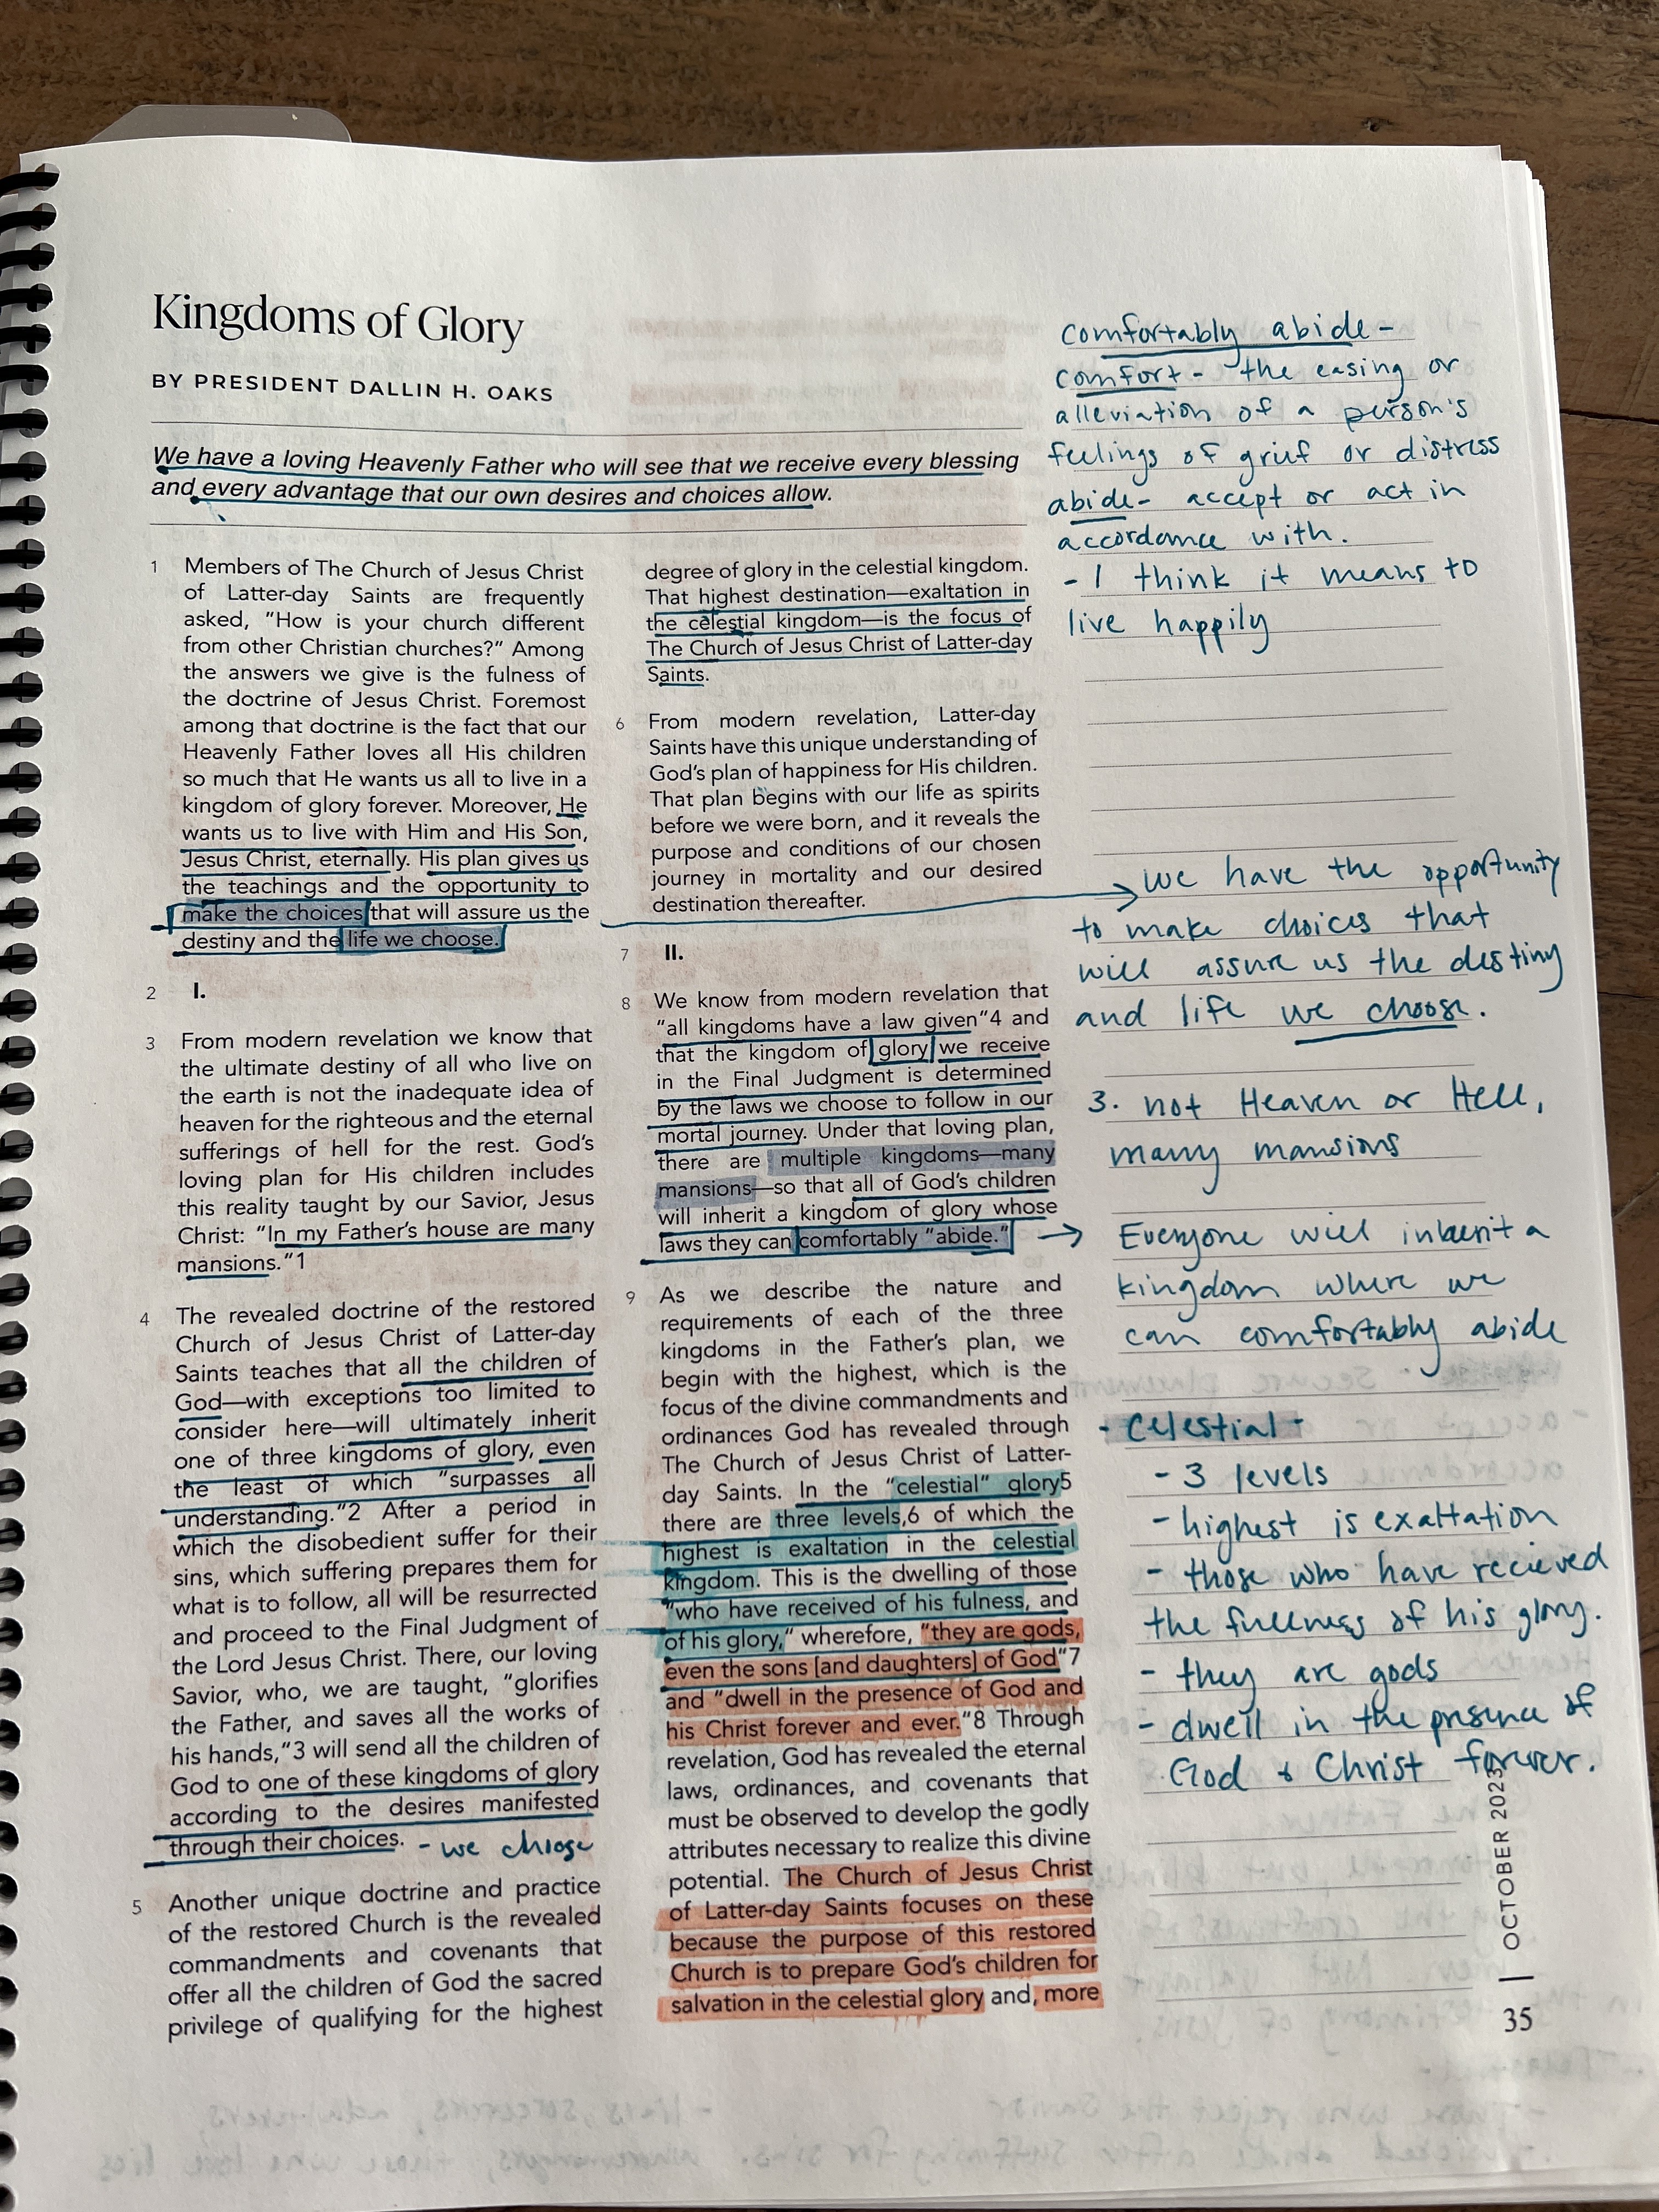 Kingdoms of Glory
BY PRESIDENT DALLIN H. OAKS
We have a loving Heavenly Father who will see that we receive every blessing
and every advantage that our own desires and choices allow.
1 Members of The Church of Jesus Christ
of Latter-day Saints are frequently
asked, "How is your church different
from other Christian churches?" Among
the answers we give is the fulness of
the doctrine of Jesus Christ. Foremost
among that doctrine is the fact that our
Heavenly Father loves all His children
so much that He wants us all to live in a
kingdom of glory forever. Moreover, He
wants us to live with Him and His Son,
Jesus Christ, eternally. His plan gives us
the teachings and the opportunity to
make the choices that will assure us the
destiny and the life we choose.
2 I.
3 From modern revelation we know that
the ultimate destiny of all who live on
the earth is not the inadequate idea of
heaven for the righteous and the eternal
sufferings of hell for the rest. God's
loving plan for His children includes
this reality taught by our Savior, Jesus
Christ: "In my Father's house are many
mansions."1
4 The revealed doctrine of the restored
Church of Jesus Christ of Latter-day
Saints teaches that all the children of
God—with exceptions too limited to
consider here—will ultimately inherit
one of three kingdoms of glory, even
the least of which "surpasses all
understanding."2 After a period in
which the disobedient suffer for their
sins, which suffering prepares them for
what is to follow, all will be resurrected
and proceed to the Final Judgment of
the Lord Jesus Christ. There, our loving
Savior, who, we are taught, "glorifies
the Father, and saves all the works of
his hands,"3 will send all the children of
God to one of these kingdoms of glory
according to the desires manifested
through their choices. - we choose
5 Another unique doctrine and practice
of the restored Church is the revealed
commandments and covenants that
offer all the children of God the sacred
privilege of qualifying for the highest
degree of glory in the celestial kingdom.
That highest destination—exaltation in
the celestial kingdom—is the focus of
The Church of Jesus Christ of Latter-day
Saints.
6 From modern revelation, Latter-day
Saints have this unique understanding of
God's plan of happiness for His children.
That plan begins with our life as spirits
before we were born, and it reveals the
purpose and conditions of our chosen
journey in mortality and our desired
destination thereafter.
7 II.
8 We know from modern revelation that
"all kingdoms have a law given"4 and
that the kingdom of glory we receive
in the Final Judgment is determined
by the laws we choose to follow in our
mortal journey. Under that loving plan,
there are multiple kingdoms—many
mansions—so that all of God's children
will inherit a kingdom of glory whose
laws they can comfortably "abide."
9 As we describe the nature and
requirements of each of the three
kingdoms in the Father's plan, we
begin with the highest, which is the
focus of the divine commandments and
ordinances God has revealed through
The Church of Jesus Christ of Latter-
day Saints. In the "celestial" glory5
there are three levels,6 of which the
highest is exaltation in the celestial
kingdom. This is the dwelling of those
"who have received of his fulness, and
of his glory," wherefore, "they are gods,
even the sons [and daughters] of God"7
and "dwell in the presence of God and
his Christ forever and ever."8 Through
revelation, God has revealed the eternal
laws, ordinances, and covenants that
must be observed to develop the godly
attributes necessary to realize this divine
potential. The Church of Jesus Christ
of Latter-day Saints focuses on these
because the purpose of this restored
Church is to prepare God's children for
salvation in the celestial glory and, more
comfortably abide -
comfort - the easing or
alleviation of a person's
feelings of grief or distress
abide - accept or act in
accordance with.
- I think it means to
live happily
we have the opportunity
to make choices that
will assure us the destiny
and life we choose.
3. not Heaven or Hell,
many mansions
Everyone will inherit a
kingdom where we
can comfortably abide
- Celestial -
- 3 levels
- highest is exaltation
- those who have recieved
the fullness of his glory.
- they are gods
- dwell in the presence of
God & Christ forever.
OCTOBER 2023
35